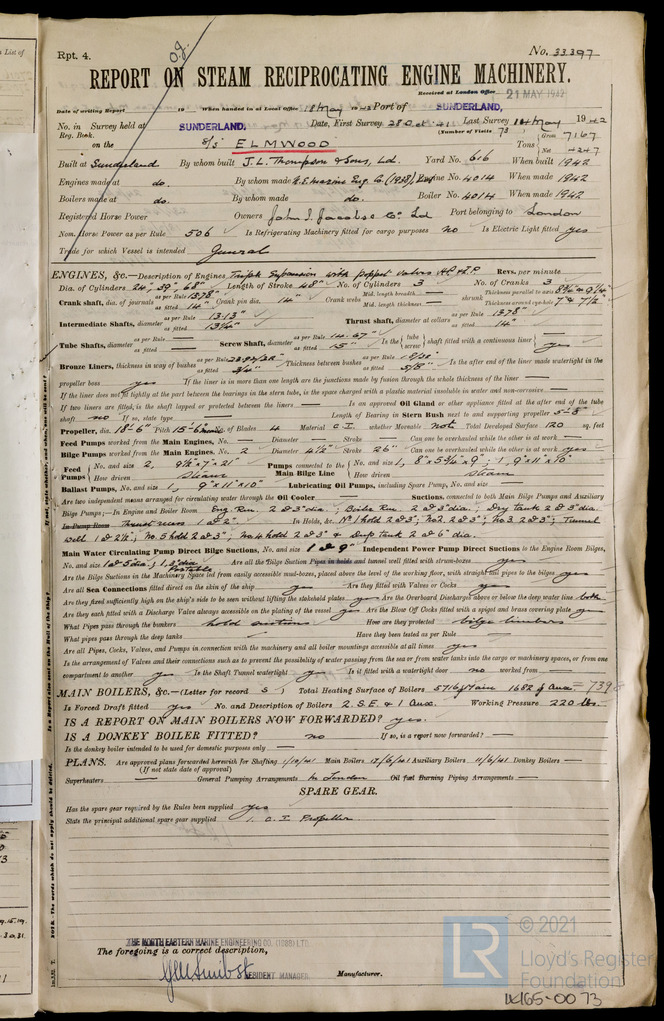 Rpt. 4.
No. 33397
REPORT ON STEAM RECIPROCATING ENGINE MACHINERY.
Received at London Office 21 MAY 1942
Date of writing Report 19 When handed in at Local Office 18 May 1942 Port of SUNDERLAND,
No. in Survey held at SUNDERLAND, Date, First Survey 28 Oct 41 Last Survey 14 May 1942
Reg. Book. (Number of Visits 73)
on the S/S ELMWOOD Tons Gross 7167 Net 4247
Built at Sunderland By whom built J.L. Thompson & Sons, Ld. Yard No. 616 When built 1942
Engines made at do. By whom made N.E. Marine Eng. Co (1938) Ltd Engine No. 4014 When made 1942
Boilers made at do. By whom made do. Boiler No. 4014 When made 1942
Registered Horse Power Owners John I. Jacobs & Co. Ld Port belonging to London
Nom. Horse Power as per Rule 506 Is Refrigerating Machinery fitted for cargo purposes no Is Electric Light fitted yes
Trade for which Vessel is intended General
ENGINES, &c.—Description of Engines Triple Expansion with poppet valves HP & IP Revs. per minute
Dia. of Cylinders 24", 39", 68" Length of Stroke 48" No. of Cylinders 3 No. of Cranks 3
Crank shaft, dia. of journals as per Rule 13.78" as fitted 14" Crank pin dia. 14" Crank webs Mid. length breadth — Mid. length thickness — shrunk Thickness parallel to axis Thickness around eye-hole
Intermediate Shafts, diameter as per Rule 13.13" as fitted 13 1/4" Thrust shaft, diameter at collars as per Rule 13.78 as fitted 14"
Tube Shafts, diameter as per Rule — as fitted — Screw Shaft, diameter as per Rule 14.67" as fitted 15" Is the tube screw shaft fitted with a continuous liner yes
Bronze Liners, thickness in way of bushes as per Rule as fitted 3/4" Thickness between bushes as per Rule as fitted 5/8" Is the after end of the liner made watertight in the
propeller boss yes If the liner is in more than one length are the junctions made by fusion through the whole thickness of the liner —
If the liner does not fit tightly at the part between the bearings in the stern tube, is the space charged with a plastic material insoluble in water and non-corrosive —
If two liners are fitted, is the shaft lapped or protected between the liners — Is an approved Oil Gland or other appliance fitted at the after end of the tube
shaft no If so, state type — Length of Bearing in Stern Bush next to and supporting propeller 5'-8"
Propeller, dia. 18'-6" Pitch 15'-6" No. of Blades 4 Material C.I. whether Moveable not Total Developed Surface 120 sq. feet
Feed Pumps worked from the Main Engines, No. — Diameter — Stroke — Can one be overhauled while the other is at work —
Bilge Pumps worked from the Main Engines, No. 2 Diameter 4 1/2" Stroke 26" Can one be overhauled while the other is at work yes
Feed Pumps No. and size 2, 9 1/2" x 7" x 21" How driven Steam Pumps connected to the Main Bilge Line No. and size How driven Steam
Ballast Pumps, No. and size 1, 9" x 11" x 10" Lubricating Oil Pumps, including Spare Pump, No. and size —
Are two independent means arranged for circulating water through the Oil Cooler — Suctions, connected to both Main Bilge Pumps and Auxiliary
Bilge Pumps;—In Engine and Boiler Room Eng. Rm. 2 @ 3" dia; Boiler Rm 2 @ 3" dia; Dry tank 2 @ 3" dia.
In Pump Room Thrust recess 1 @ 2" In Holds, &c. No 1 hold 2 @ 3"; No 2. 2 @ 3"; No 3. 2 @ 3"; Tunnel
well 1 @ 2 1/2"; No 5 hold 2 @ 3"; No 4 hold 2 @ 3" & Deep tank 2 @ 6" dia.
Main Water Circulating Pump Direct Bilge Suctions, No. and size 1 @ 9" Independent Power Pump Direct Suctions to the Engine Room Bilges,
No. and size 1 @ 5" dia; Portable Are all the Bilge Suction Pipes in holds and tunnel well fitted with strum-boxes yes
Are the Bilge Suctions in the Machinery Space led from easily accessible mud-boxes, placed above the level of the working floor, with straight tail pipes to the bilges yes
Are all Sea Connections fitted direct on the skin of the ship yes Are they fitted with Valves or Cocks yes
Are they fixed sufficiently high on the ship's side to be seen without lifting the stokehold plates yes Are the Overboard Discharges above or below the deep water line both
Are they each fitted with a Discharge Valve always accessible on the plating of the vessel yes Are the Blow Off Cocks fitted with a spigot and brass covering plate yes
What Pipes pass through the bunkers hold suctions How are they protected bilge limbers
What pipes pass through the deep tanks — Have they been tested as per Rule —
Are all Pipes, Cocks, Valves, and Pumps in connection with the machinery and all boiler mountings accessible at all times yes
Is the arrangement of Valves and their connections such as to prevent the possibility of water passing from the sea or from water tanks into the cargo or machinery spaces, or from one
compartment to another yes Is the Shaft Tunnel watertight yes Is it fitted with a watertight door no worked from —
MAIN BOILERS, &c.—(Letter for record S) Total Heating Surface of Boilers 5716 Main 1682 Aux = 7398
Is Forced Draft fitted yes No. and Description of Boilers 2. S.E. & 1 Aux. Working Pressure 220 lbs.
IS A REPORT ON MAIN BOILERS NOW FORWARDED? yes.
IS A DONKEY BOILER FITTED? no If so, is a report now forwarded? —
Is the donkey boiler intended to be used for domestic purposes only —
PLANS. Are approved plans forwarded herewith for Shafting 1/10/41 Main Boilers 17/6/41 Auxiliary Boilers 11/6/41 Donkey Boilers —
(If not state date of approval)
Superheaters — General Pumping Arrangements In London Oil fuel Burning Piping Arrangements —
SPARE GEAR.
Has the spare gear required by the Rules been supplied yes
State the principal additional spare gear supplied 1. C.I. Propeller.
THE NORTH EASTERN MARINE ENGINEERING CO. (1938) LTD.
The foregoing is a correct description,
RESIDENT MANAGER Manufacturer.
© 2021
LR
Lloyd's Register
Foundation
LR165-0073